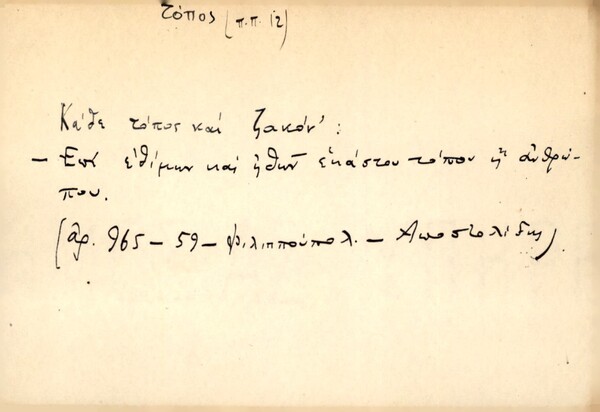 τόπος (π.π. 12)
Κάθε τόπος καί ζακόν' :
– Επί εθίμων καί ηθών εκάστου τόπου ή ανθρώ-
που.
(αρ. 965 – 59 – Φιλιππούπολ. – Αποστολίδης)